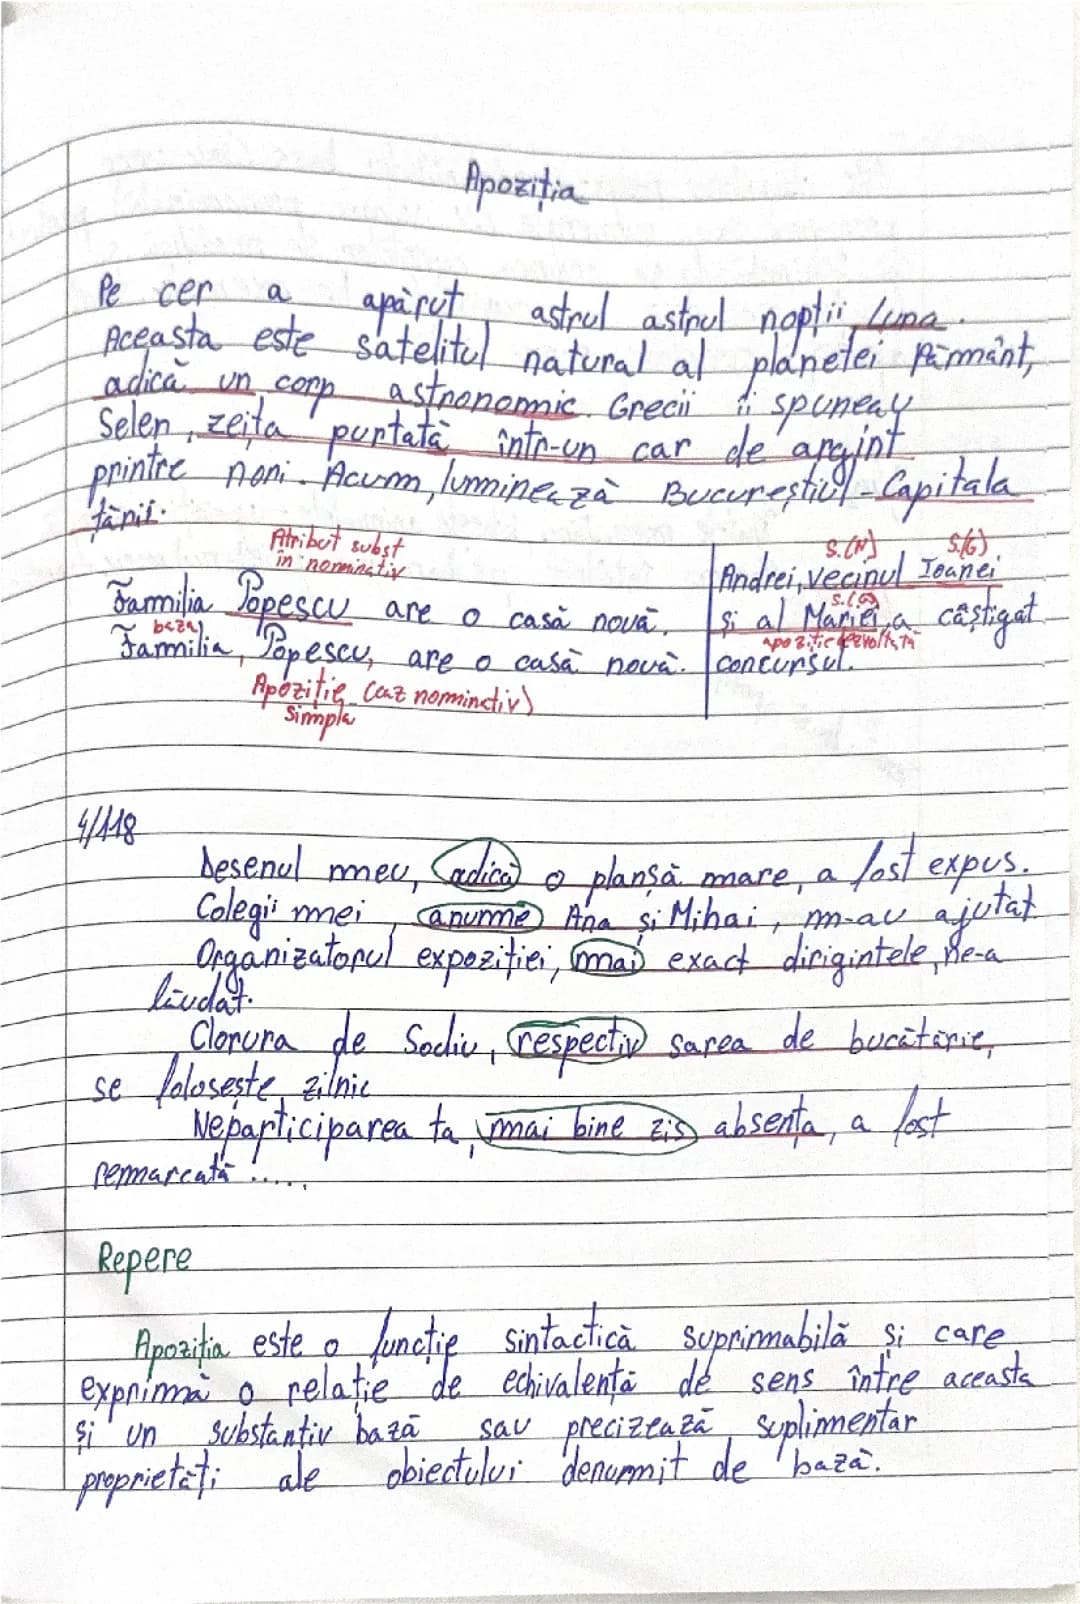 Apoziția
Pe cer a apărut astrul astrul nopții, Luna.
Aceasta este satelitul natural al planetei Pământ,
adică un corp astronomic. Grecii îi spuneau
Selen, zeița purtată într-un car de argint
printre nori. Acum, luminează Bucureștiul - Capitala
țării.
Atribut subst
în nominativ
Familia Popescu are o casă nouă.
bază
Familia, Popescu, are o casă nouă.
Apoziție (caz nominativ)
Simplă
S.(N) S.(G)
Andrei, vecinul Ioanei
S.(G)
și al Mariei, a câștigat
apoziție dezvoltată
concursul.
4/118
Desenul meu, adică o planșă mare, a fost expus.
Colegii mei, anume Ana și Mihai, m-au ajutat
Organizatorul expoziției, mai exact dirigintele, ne-a
lăudat.
Clorura de Sodiu, respectiv sarea de bucătărie,
se folosește zilnic
Neparticiparea ta, mai bine zis absența, a fost
remarcată .....
Repere
Apoziția este o funcție sintactică suprimabilă și care
exprimă o relație de echivalență de sens între aceasta
și un substantiv bază sau precizează suplimentar
proprietăți ale obiectului denumit de bază.